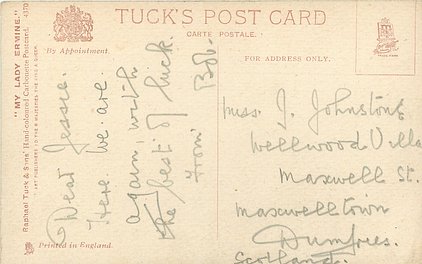 TUCK'S POST CARD
CARTE POSTALE.
By Appointment.
FOR ADDRESS ONLY.
"MY LADY ERMINE." 4170
Raphael Tuck & Sons' Hand-coloured Carbonette Postcard.
ART PUBLISHERS TO THEIR MAJESTIES THE KING & QUEEN
Printed in England.
Dear Jessie.
Here we are
again, with
the best of luck.
From
Bob.
Miss. J. Johnstone
Wellwood Villa
Maxwell St.
Maxwelltown
Dumfries.
Scotland.